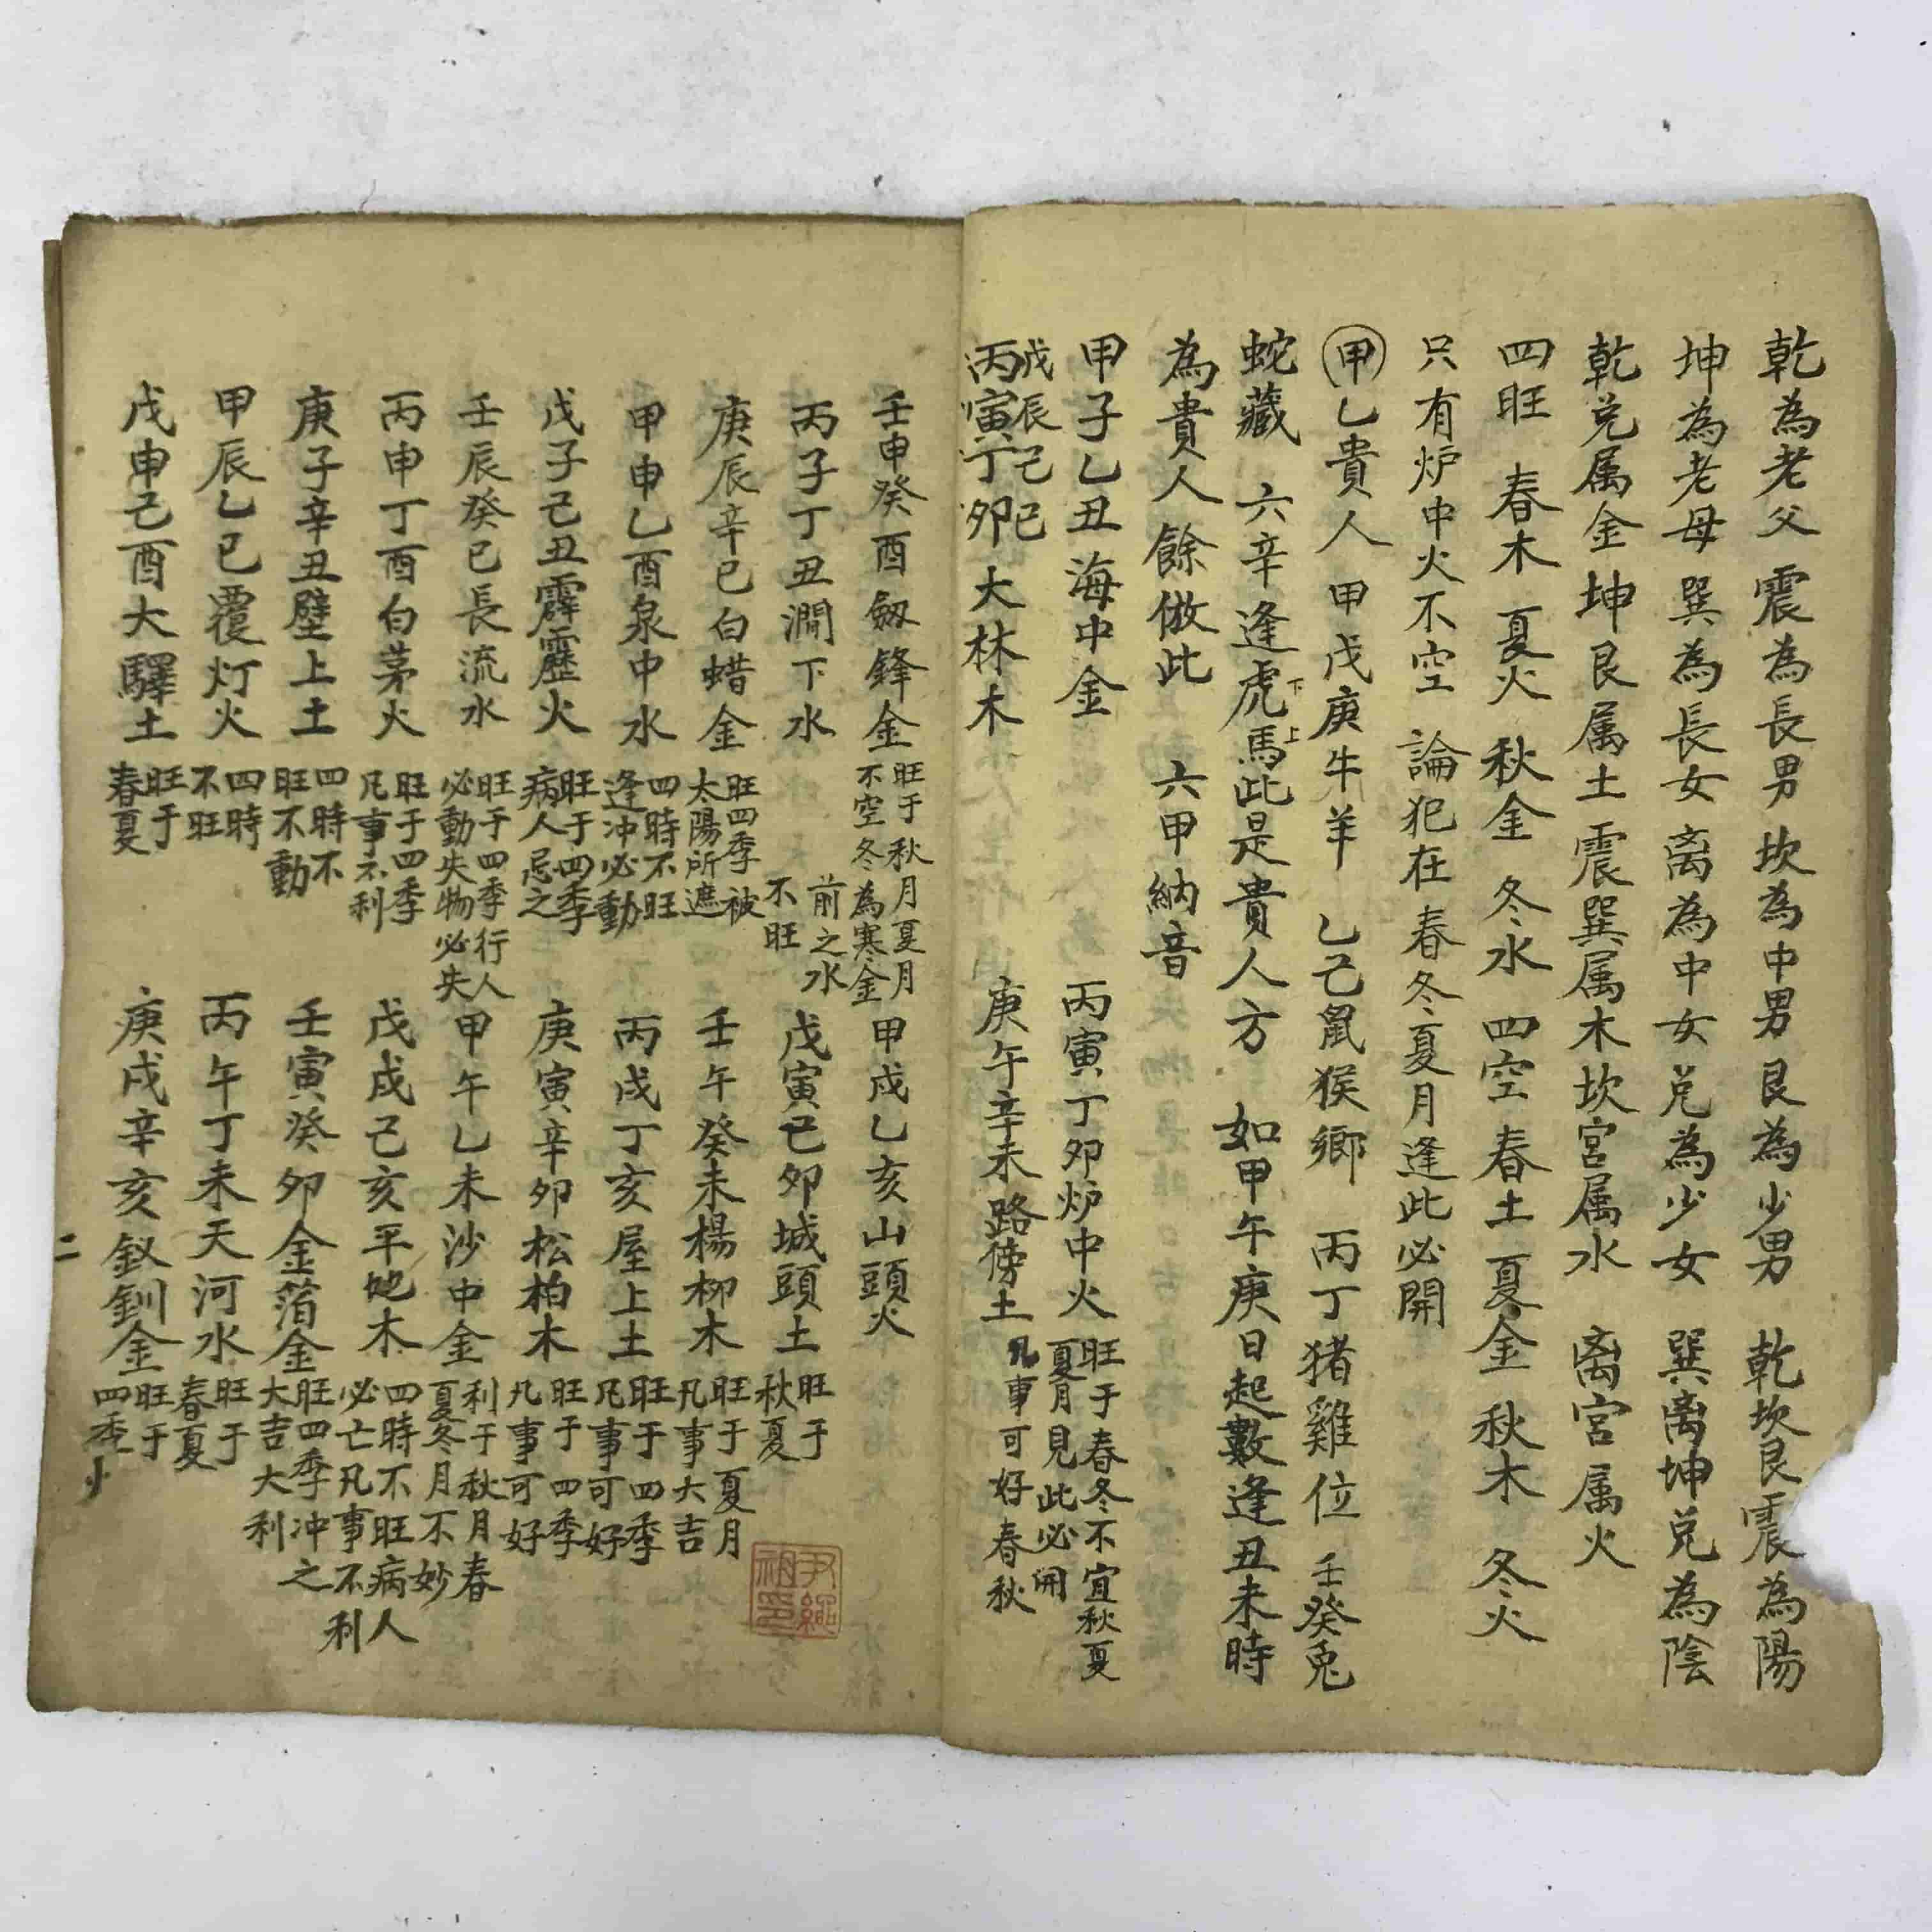 乾為老父 震為長男 坎為中男 艮為少男 乾坎艮震為陽
坤為老母 巽為長女 离為中女 兑為少女 巽离坤兑為陰
乾兑属金 坤艮属土 震巽属木 坎宮属水 离宮属火
四旺 春木 夏火 秋金 冬水 四空 春土 夏金 秋木 冬火
只有炉中火不空 論犯在春冬夏月逢此必開
甲乙貴人 甲戊庚牛羊 乙己鼠猴鄉 丙丁猪雞位 壬癸兎
蛇藏 六辛逢虎下馬上此是貴人方 如甲午庚日起數逢丑未時
為貴人餘倣此 六甲納音
甲子乙丑海中金
丙寅丁卯炉中火 旺于春冬不宜秋夏
夏月見此必開
戊辰己巳
丙寅丁卯大林木
庚午辛未路傍土 凡事可好春秋
壬申癸酉劔鋒金 旺于秋月夏月
不空冬為寒金
甲戌乙亥山頭火
丙子丁丑澗下水 前之水
不旺
戊寅己卯城頭土 旺于
秋夏
庚辰辛巳白蜡金 旺四季被
太陽所遮
壬午癸未楊柳木 旺于夏月
凡事大吉
甲申乙酉泉中水 四時不旺
逢冲必動
丙戌丁亥屋上土 旺于四季
凡事可好
戊子己丑霹靂火 旺于四季
病人忌之
庚寅辛卯松柏木 旺于四季
凡事可好
壬辰癸巳長流水 旺于四季行人
必動失物必失
甲午乙未沙中金 利于秋月春
夏冬月不妙
丙申丁酉白茅火 旺于四季
凡事不利
戊戌己亥平地木 四時不旺病人
必亡凡事不利
庚子辛丑壁上土 四時不
旺不動
壬寅癸卯金箔金 旺四季冲之
大吉大利
甲辰乙巳覆灯火 四時
不旺
丙午丁未天河水 旺于
春夏
戊申己酉大驛土 旺于
春夏
庚戌辛亥釵釧金 旺于
四季
二